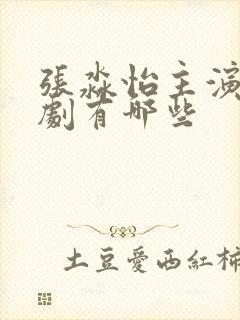 張淼怡主演
劇有哪些
土豆愛西紅柿